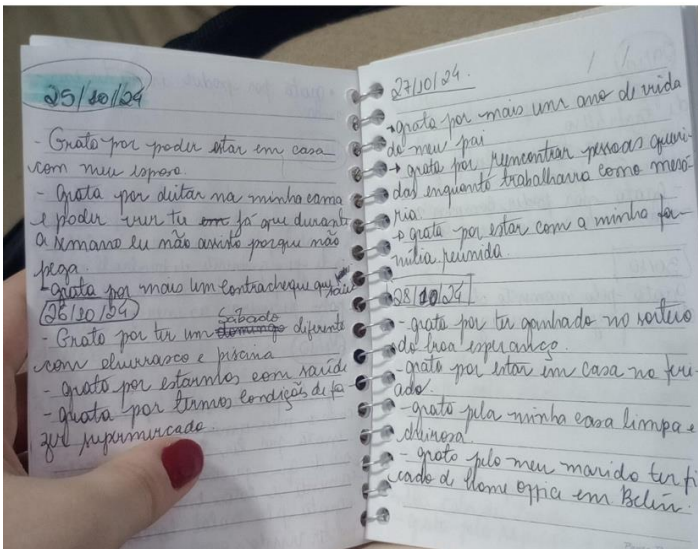 25/10/24
- Grata por poder estar em casa
com meu esposo.
- grata por deitar na minha cama
e poder ver tv em já que durante
a semana eu não assisto porque não
pega.
- grata por mais um contracheque que saiu
26/10/24
- Grata por ter um domingo sábado diferente
com churrasco e piscina
- grata por estarmos com saúde
- grata por termos condições de fa
zer supermercado.
27/10/24.
→ grata por mais um ano de vida
do meu pai
→ grata por reencontrar pessoas queri
das enquanto trabalhava como mesá
ria
→ grata por estar com a minha fa-
mília reunida.
28/10/24
- grata por ter ganhado no sorteio
do boa esperança.
- grata por estar em casa no feri
ado.
- grata pela minha casa limpa e
cheirosa
- grata pelo meu marido ter fi
cado de Home office em